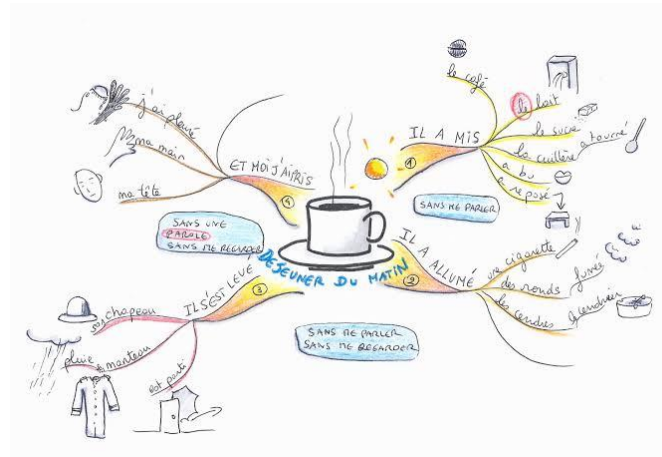 DEJEUNER DU MATIN
1
IL A MIS
le café
le lait
le sucre
la cuillère a tourné
a bu
a reposé
SANS ME PARLER
2
IL A ALLUMÉ
une cigarette
des ronds fumée
les cendres cendrier
SANS ME PARLER
SANS ME REGARDER
3
IL S'EST LEVÉ
chapeau
manteau
pluie
est parti
SANS UNE
PAROLE
SANS ME REGARDER
4
ET MOI J'AI PRIS
ma tête
ma main
j'ai pleuré